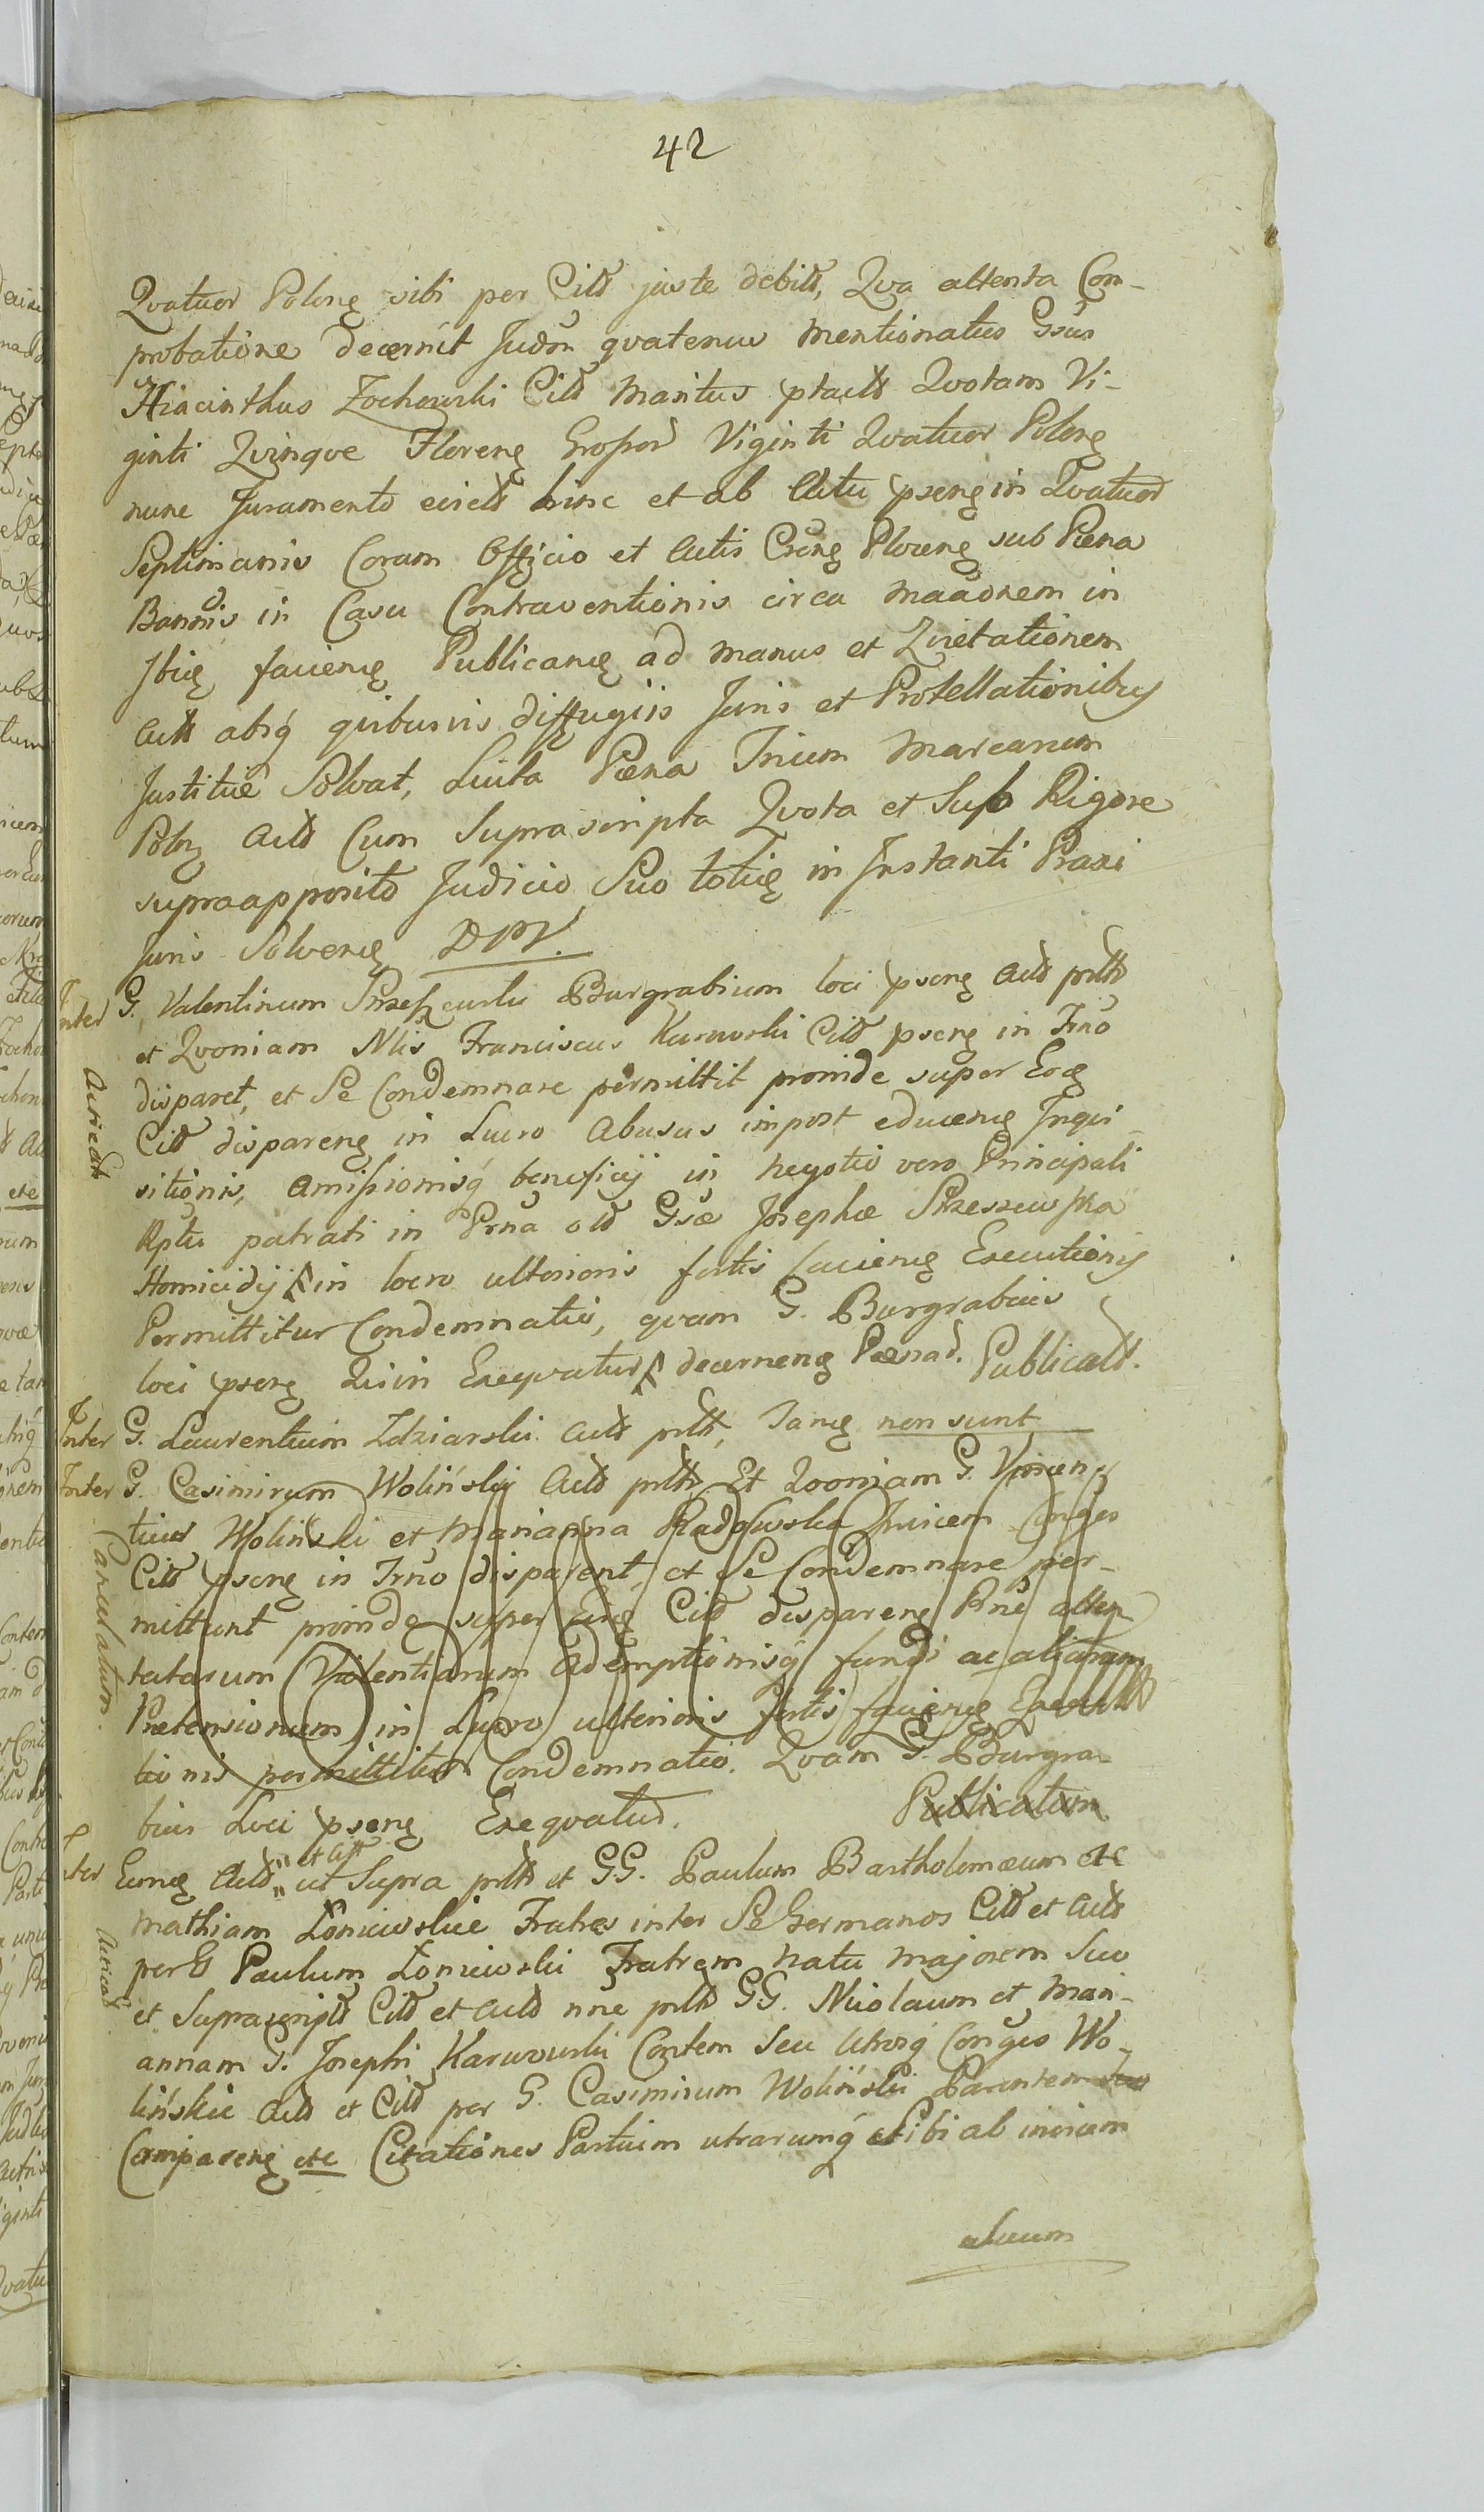 42
Qvatuor Polong sibi per Citt juste debitt, Qva attenta Com-
probatione decernit Judm qvatenus Mentionatus Gsus
Hiacinthus Zochowski Citt Maritus ptactt Qvotam Vi-
ginti Qvinqve Floreng Grossor Viginti Qvatuor Polong
nunc Juramento evictt hinc et ab Actu pseng in Qvatuor
Septimanis Coram Officio et Actis Crseng sub Pæna
Bannis in Casu Contraventionis circa in
facieng Publicang ad manus et Qvietationem
Actt absq quibusvis diffugiis Juris et Protellationibus
Justitiæ Solvat, Luita Pæna Trium Marcarum
Polog Actt Cum Suprascripta Qvota et Sub Rigore
supraapposito Judicio Suo totig in Instanti Praxi
Juris Solveng DPV.
Inter G. Valentinum Burgrabium loci pseng Actt prltt
et Qvoniam Nlis Franciscus Karwoski Citt pseng in Trno
disparet, et Se Condemnare permittit proinde super Eog
Citt dispareng in Lucro Abusus impost educeng Inqui-
sitionis, amissionisq beneficij in Negotio vero Principali
Rptu patrati in Prna olt Gsæ Josephæ
Homicidij in lucro ulterioris fortis facieng Executionis
Permittitur Condemnatio, qvam G. Burgrabius
loci pseng Exeqvatur decerneng Pænad. Publicatt.
Acticatt
Inter G. Laurentium Zdziarski Actt prltt, Jang non sunt
Inter G. Casimirum Woliński Actt prltt Et Qvoniam G. Vincen
tius Woliński et Marianna Invicem Conges
Citt pseng in Trno disparent, et Se Condemnare per-
mittunt proinde super Eisg Citt dispareng Rne atten
tatarum Violentiarum Ademptionisq fundi ac aliarum
Prætensionum in Lucro ulterioris fortis facieng Execut
tionis permittitur Condemnatio. Qvam G. Burgra-
bius Loci pseng Exeqvatur. Publicatum
Cancelatum.
Inter Eung Actt et Citt ut Supra prltt et GG. Paulum Bartholomæum etc
Mathiam Łoniewskie Fratres inter Se Germanos Citt et Actt
per G Paulum Łoniewski Fratrem Natu Majorem Suo
et Suprascriptt Citt et Actt nne prltt GG. Nicolaum et Mari-
annam G. Josephi Karwowski Contem Seu Utrosq Conges Wo-
lińskie Actt et Citt per G. Casimirum Woliński Parentem
Compareng etc Citationes Partium utrarumq Sibi ab invicem
Acticatt